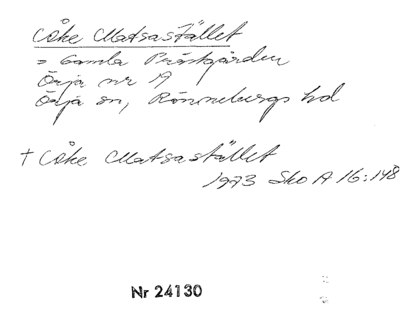 Åke Matsastället
= Gamla Prästgården
Örja nr 1
Örja sn, Rönnebergs hd
† Åke Matsastället
1973 Sko A 16:148
Nr 24130